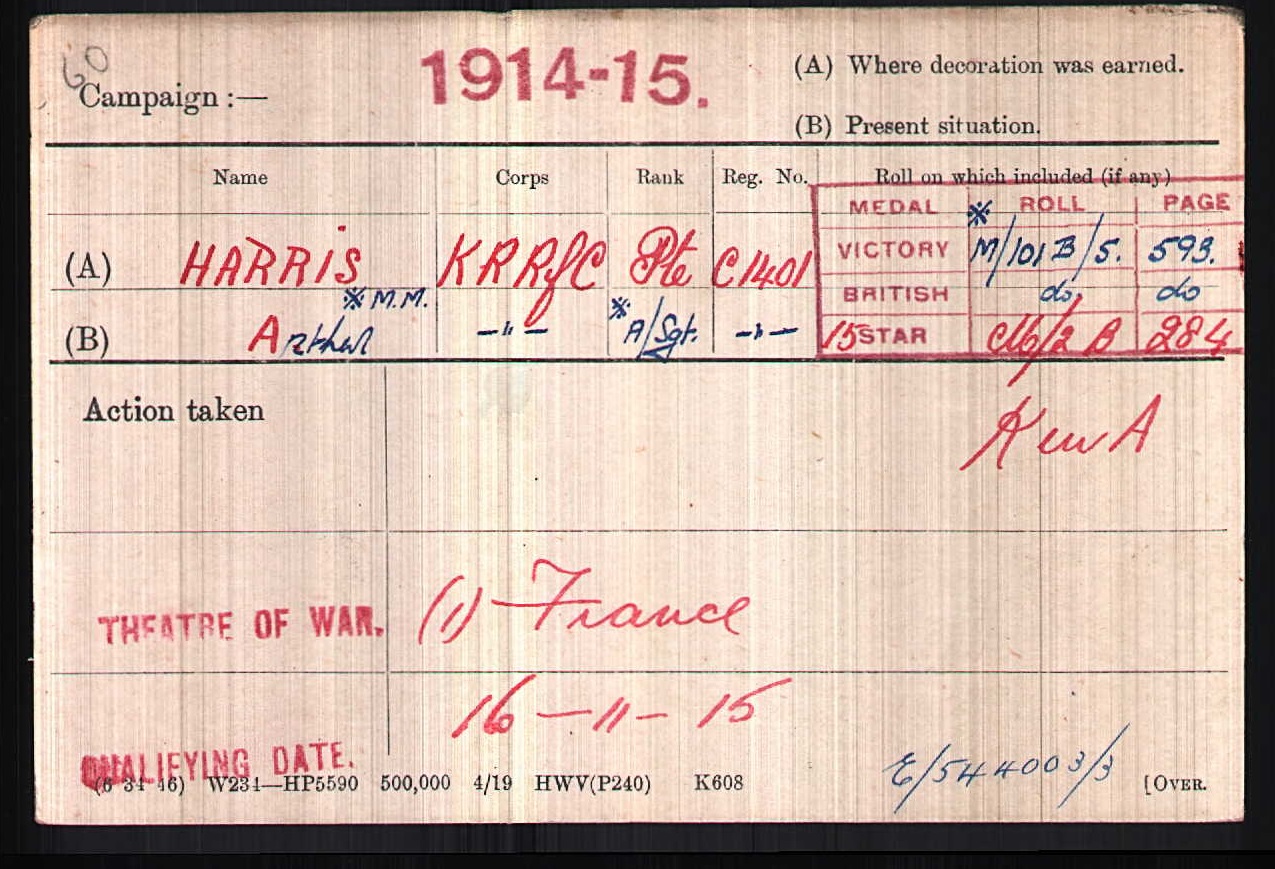 60
Campaign :— 1914-15. (A) Where decoration was earned.
(B) Present situation.
Name Corps Rank Reg. No. Roll on which included (if any)
MEDAL ※ ROLL PAGE
(A) HARRIS KRRfC Pte C1401 VICTORY M/101 B/5. 593.
※ M.M. BRITISH do, do
(B) Arthur —"— ※ A/Sgt. —"— 15 STAR 284
Action taken K in A
THEATRE OF WAR. (1) France
16 — 11 — 15
QUALIFYING DATE.
(6 34 46) W234—HP5590 500,000 4/19 HWV(P240) K608 E/544003/3 [OVER.